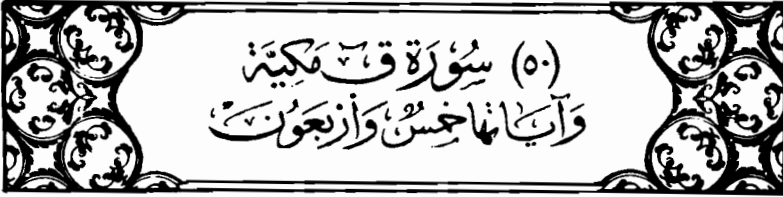 (٥٠) سُوْرَة قۤ مَكِيَّة
وَآيَاتُهَا خَمْسٌ وَأَرْبَعُوْنَ